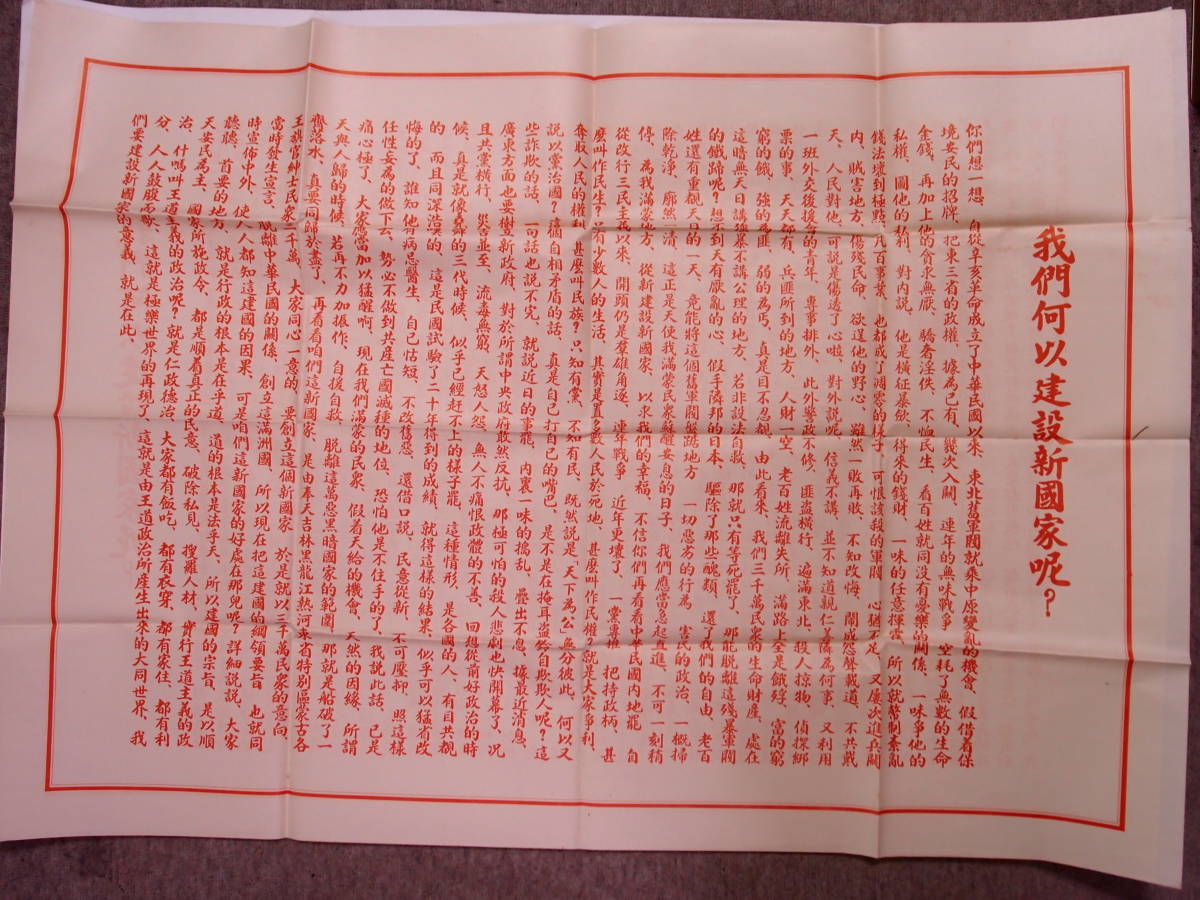 我們何以建設新國家呢？
你們想一想、自從辛亥革命成立了中華民國以來、東北舊軍閥就乘中原變亂的機會、假借着保
境安民的招牌、把東三省的政權、據為己有、幾次入關、連年的無味戰爭、空耗了無數的生命
金錢、再加上他的貪求無厭、驕奢淫佚、不恤民生、看百姓就同沒有憂樂的關係、一味爭他的
私權、圖他的私利、對內說、他是橫征暴歛、得來的錢財、一味的任意揮霍、所以就幣制紊亂
錢法壞到極點、凡百事業、也都成了凋零的樣子、可恨該殺的軍閥、心猶不足、又屢次進兵關
內、賊害地方、傷殘民命、欲逞他的野心、雖然一敗再敗、不知改悔、鬧成怨聲載道、不共戴
天、人民對他、可說是傷透了心啦、對外說呢、信義不講、並不知道親仁善鄰為何事、又利用
一班外交後援會的青年、專事排外、此外警政不修、匪盜橫行、遍滿東北、殺人掠物、偵探綁
票的事、天天都有、兵匪所到的地方、人財一空、老百姓流離失所、滿路上全是餓殍、富的窮
窮的餓、強的為匪、弱的為丐、真是目不忍覩、由此看來、我們三千萬民衆的生命財產、處在
這暗無天日講強暴不講公理的地方、若非設法自救、那就只有等死罷了、那能脫離這殘暴軍閥
的鐵蹄呢？想不到天有厭亂的心、假手隣邦的日本、驅除了那些醜類、還了我們的自由、老百
姓還有重覩天日的一天、竟能將這個舊軍閥盤踞地方、一切惡劣的行為、害民的政治、一概掃
除乾淨、廓然一清、這正是天使我滿蒙民衆蘇醒安息的日子、我們應當急起直進、不可一刻稍
停、為我滿蒙地方、從新建設新國家、以求我們的幸福、不信你們再看看中華民國內地罷、自
從改行三民主義以來、開頭仍是羣雄角逐、連年戰爭、近年更壞了、一黨專權、把持政柄、甚
麼叫作民生？有少數人的生活、其實是置多數人民於死地、甚麼叫作民權？就是大家爭利、
奪取人民的權利、甚麼叫民族？只知有黨、不知有民、既然說是「天下為公」無分彼此、何以又
說以黨治國？這循自相矛盾的話、真是自己打自己的嘴巴、是不是在掩耳盜鈴自欺欺人呢？這
些詐欺的話、一句話也說不完、就說近日的事罷、內裏一味的搗乱、疊出不息、據最近消息、
廣東方面也要樹新政府、對於所謂中央政府敢然反抗、那極可怕的殺人悲劇也快開幕了、況
且共黨橫行、災害並至、流毒無窮、天怒人怨、無人不痛恨政體的不善、回想從前好政治的時
候、真是就像堯舜的三代時候、似乎已經赶不上的樣子罷、這種情形、是各國的人、有目共覩
的、而且同深浩嘆的、這是民國試驗了二十年得到的成績、就得這樣的結果、似乎可以猛省改
悔的了、誰知他有病忌醫生、自己怙短、不改舊惡、還借口說、民意從新、不可壓抑、照這樣
任性妄為的做下去、勢必不做到共產亡國滅種的地位、恐怕他是不住手的了、我說此話、已是
痛心極了、大家應當加以猛醒啊、現在我們滿蒙的民衆、假着天給的機會、天然的因緣、所謂
天與人歸的時候、若再不力加振作、自援自救、脫離這萬惡黑暗國家的範圍、那就是船破了一
齊落水、真要同歸於盡了、再看看咱們這新國家、是由奉天吉林黑龍江熱河東省特別區蒙古各
王旗官紳士民衆三千萬、大家同心一意的、要創立這個新國家、於是就以三千萬民衆的意向、
當時發生宣言、脫離中華民國的關係、創立這滿洲國、所以現在把這建國的綱領要旨、也就同
時宣佈中外、使人人都知這建國的因果、可是咱們這新國家的好處在那兒呢？詳細說說、大家
聽聽、首要的地方、就是行政的根本是在乎道、道的根本是法乎天、所以建國的宗旨、是以順
天安民為主、國家所施政令、都是順着真正的民意、破除私見、搜羅人材、實行王道主義的政
治、什嗎叫王道主義的政治呢？就是仁政德治、大家都有飯吃、都有衣穿、都有家住、都有利
分、人人鼓腹而歌、這就是極樂世界的再現了、這就是由王道政治所產生出來的大同世界、我
們要建設新國家的意義、就是在此、